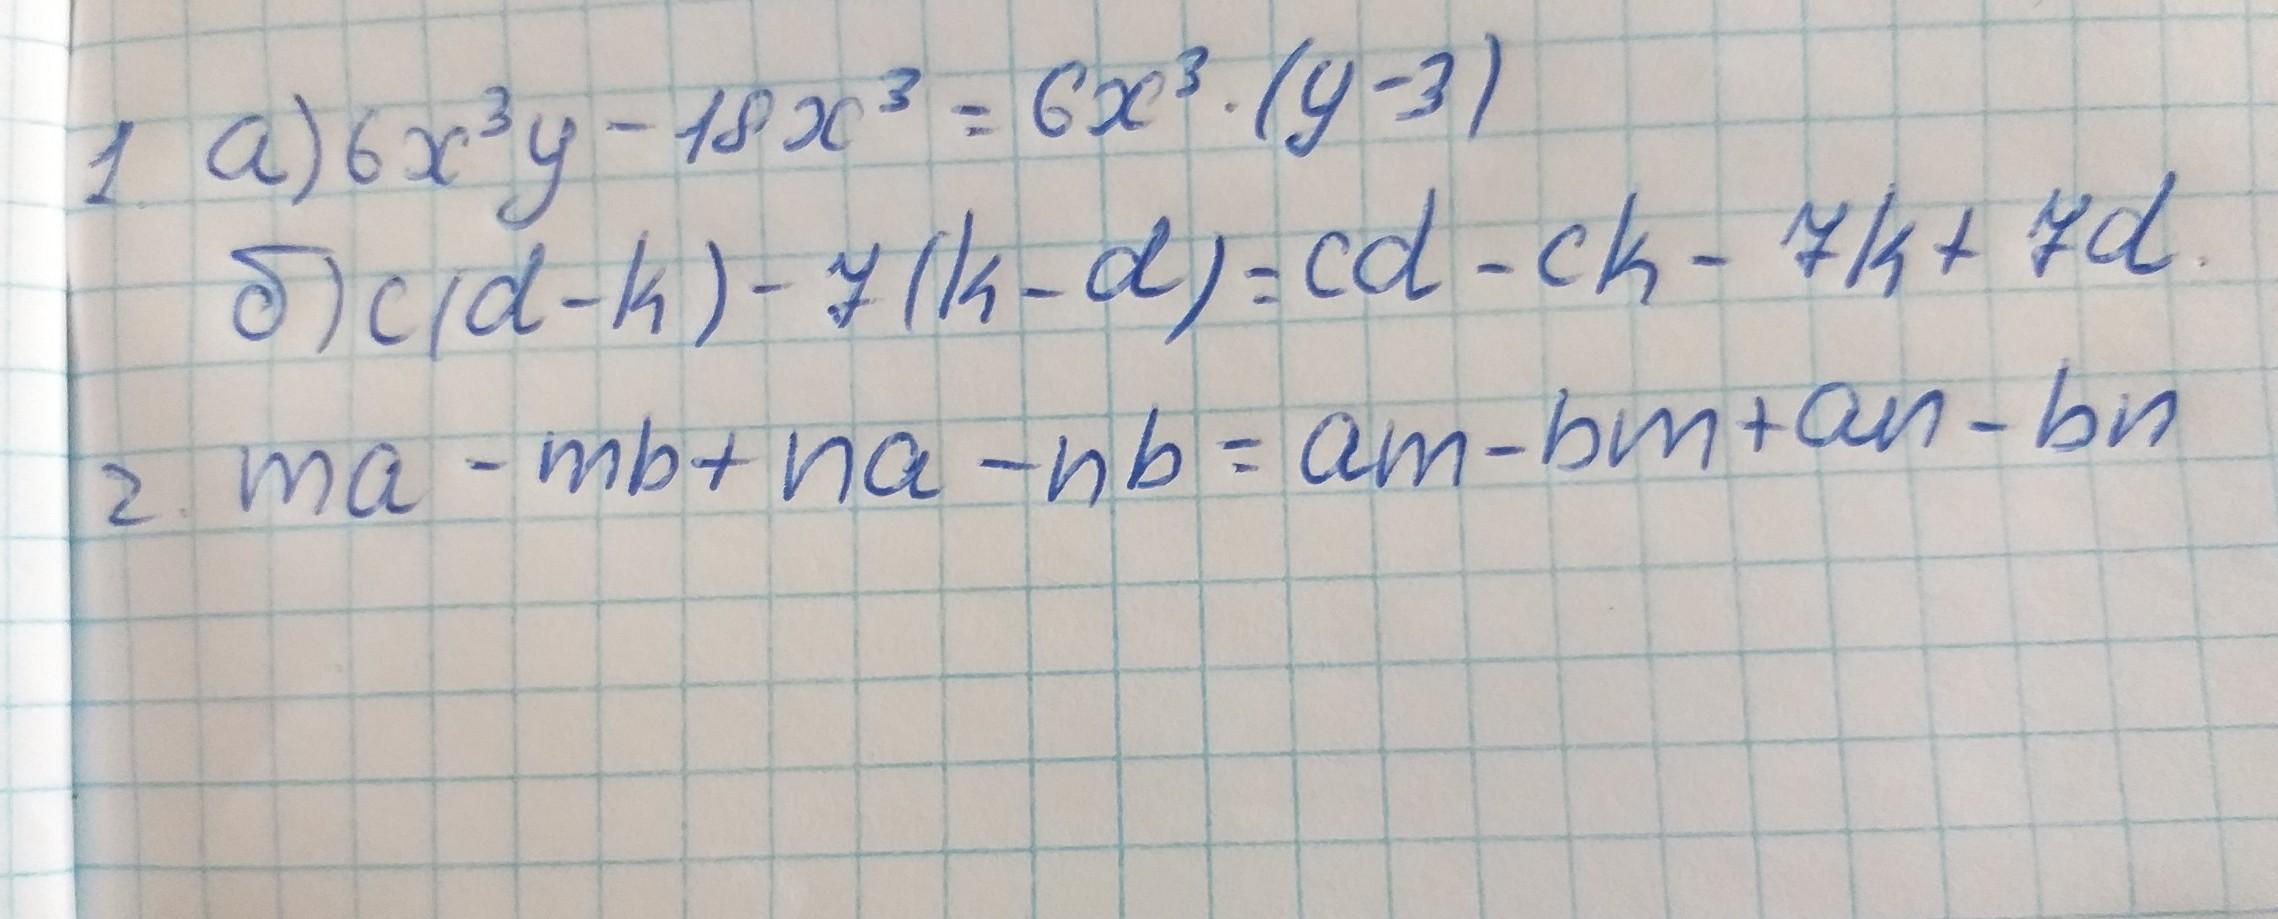 1. а) 6x³y - 18x³ = 6x³ · (y - 3)
б) c(d - k) - 7(k - d) = cd - ck - 7k + 7d.
2. ma - mb + na - nb = am - bm + an - bn